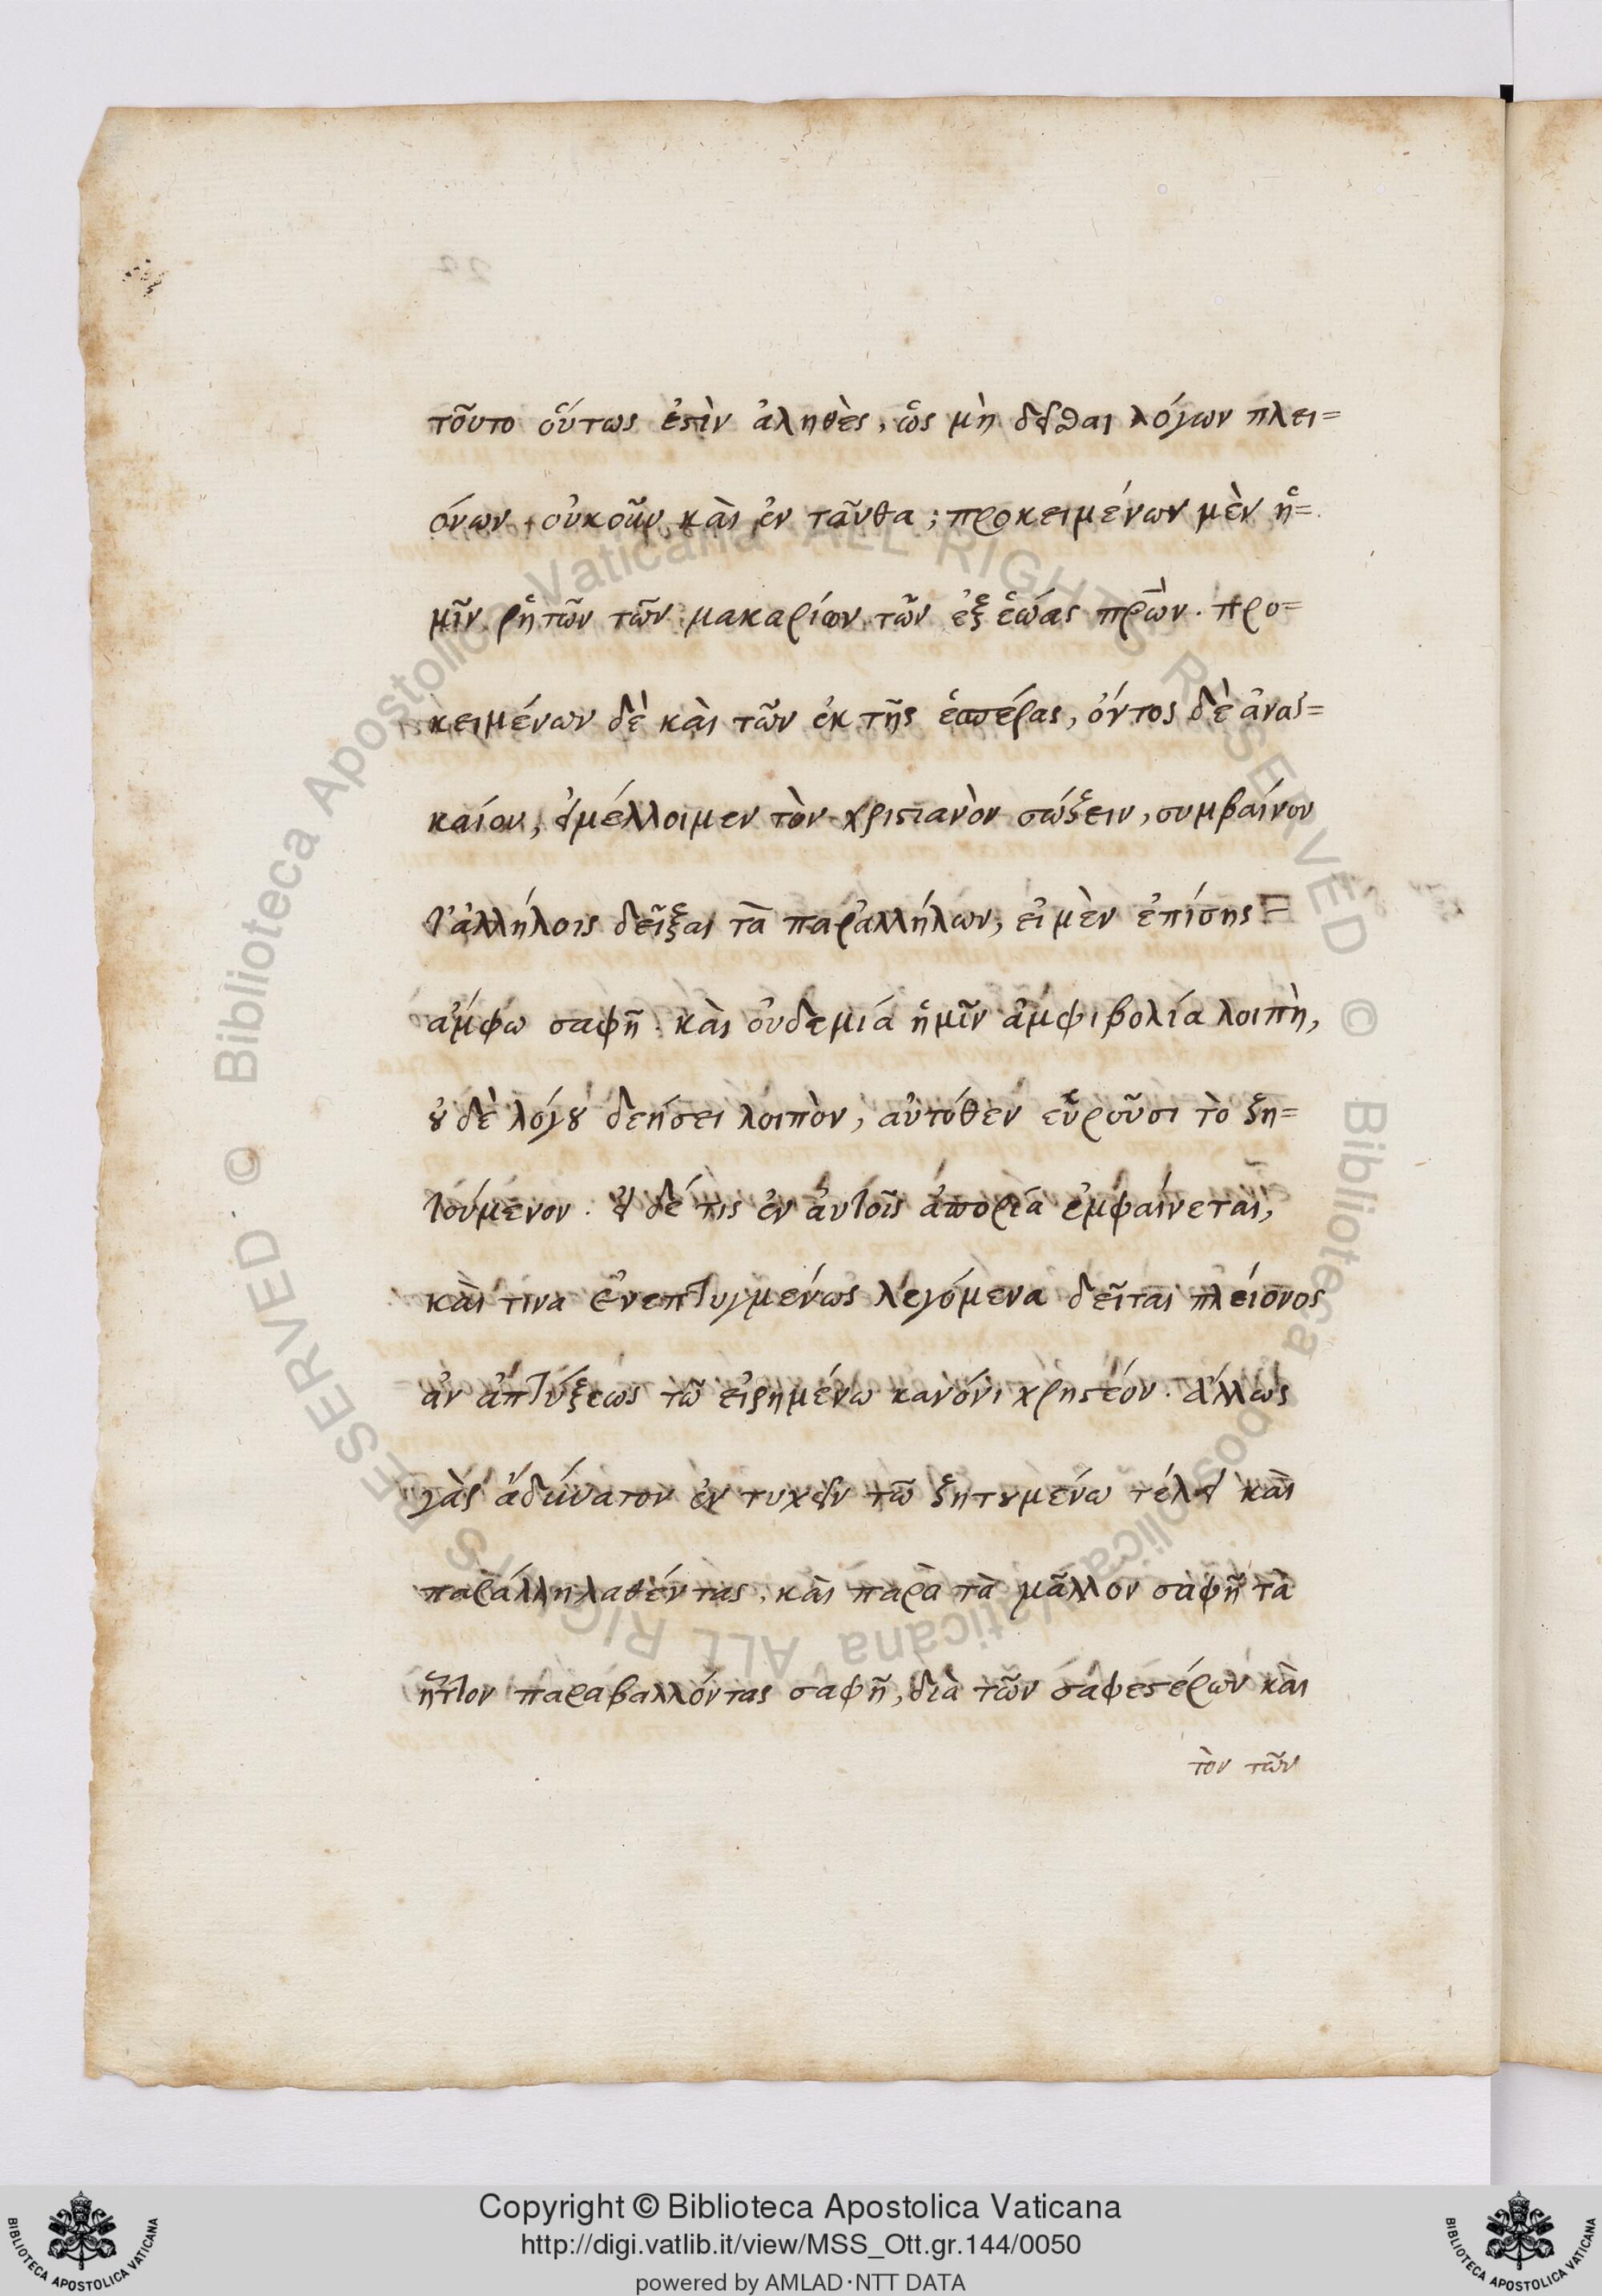 τοῦτο οὕτως ἐστὶν ἀληθὲς, ὡς μὴ δεῖσθαι λόγων πλει=
όνων + οὐκοῦν κὰι ἐν ταῦθα ; προκειμένων μὲν ἡ=
μῖν ῥητῶν τῶν μακαρίων τῶν ἐξ ἑώας πρ̅ων. προ=
κειμένων δὲ κὰι τῶν ἐκ τῆς ἑσπέρας, ὄντος δὲ ἀναγ=
καίου, εἰ μέλλοιμεν τὸν χριστιανὸν σώζειν, συμβαίνον
τ' ἀλλήλοις δεῖξαι τὰ παρ' ἀλλήλων, εἰ μὲν ἐπίσης
ἄμφω σαφῆ. κὰι οὐδεμιά ἡμῖν ἀμφιβολία λοιπὴ,
οὐ δὲ λόγου δεήσει λοιπὸν, αὐτόθεν εὑροῦσι τὸ ζη=
τούμενον. εἰ δέ τις ἐν ἀυτοῖς ἀπορία ἐμφαίνεται,
κὰι τινα ἐνεπτυγμένως λεγόμενα δεῖται πλείονος
ἀν ἀπτύξεως τῶ εἰρημένω κανόνι χρηστέον. ἄλλως
γὰρ ἀδύνατον ἐν τυχεῖν τῶ ζητουμένω τέλει κὰι
παράλληλαθέντας, κὰι παρὰ τὰ μᾶλλον σαφῆ τὰ
ἧττον παραβαλλόντας σαφῆ, διὰ τῶν σαφεστέρων κὰι
τὸν τῶν
Copyright © Biblioteca Apostolica Vaticana
http://digi.vatlib.it/view/MSS_Ott.gr.144/0050
powered by AMLAD·NTT DATA
BIBLIOTECA APOSTOLICA VATICANA
BIBLIOTECA APOSTOLICA VATICANA
© Biblioteca Apostolica Vaticana ALL RIGHTS RESERVED © Biblioteca Apostolica Vaticana ALL RIGHTS RESERVED